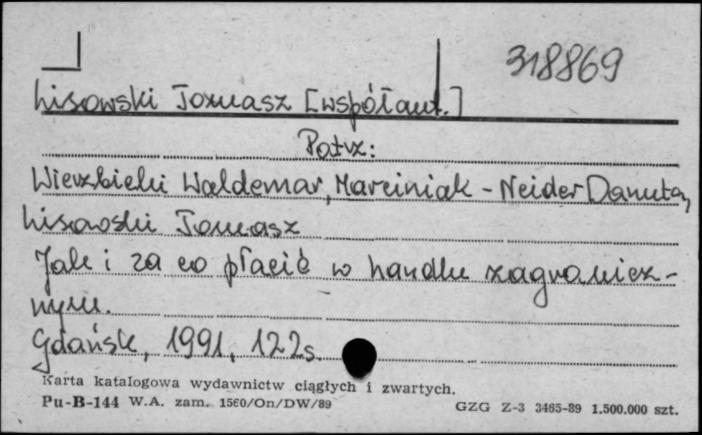 318869
Lisowski Tomasz [współaut.]
Patrz:
Wierzbicki Waldemar, Marciniak-Neider Danuta,
Lisowski Tomasz
Jak i za co płacić w handlu zagranicz-
nym.
Gdańsk, 1991, 122s.
Karta katalogowa wydawnictw ciągłych i zwartych.
Pu-B-144 W.A. zam. 1560/On/DW/89 GZG Z-3 3465-89 1.500.000 szt.